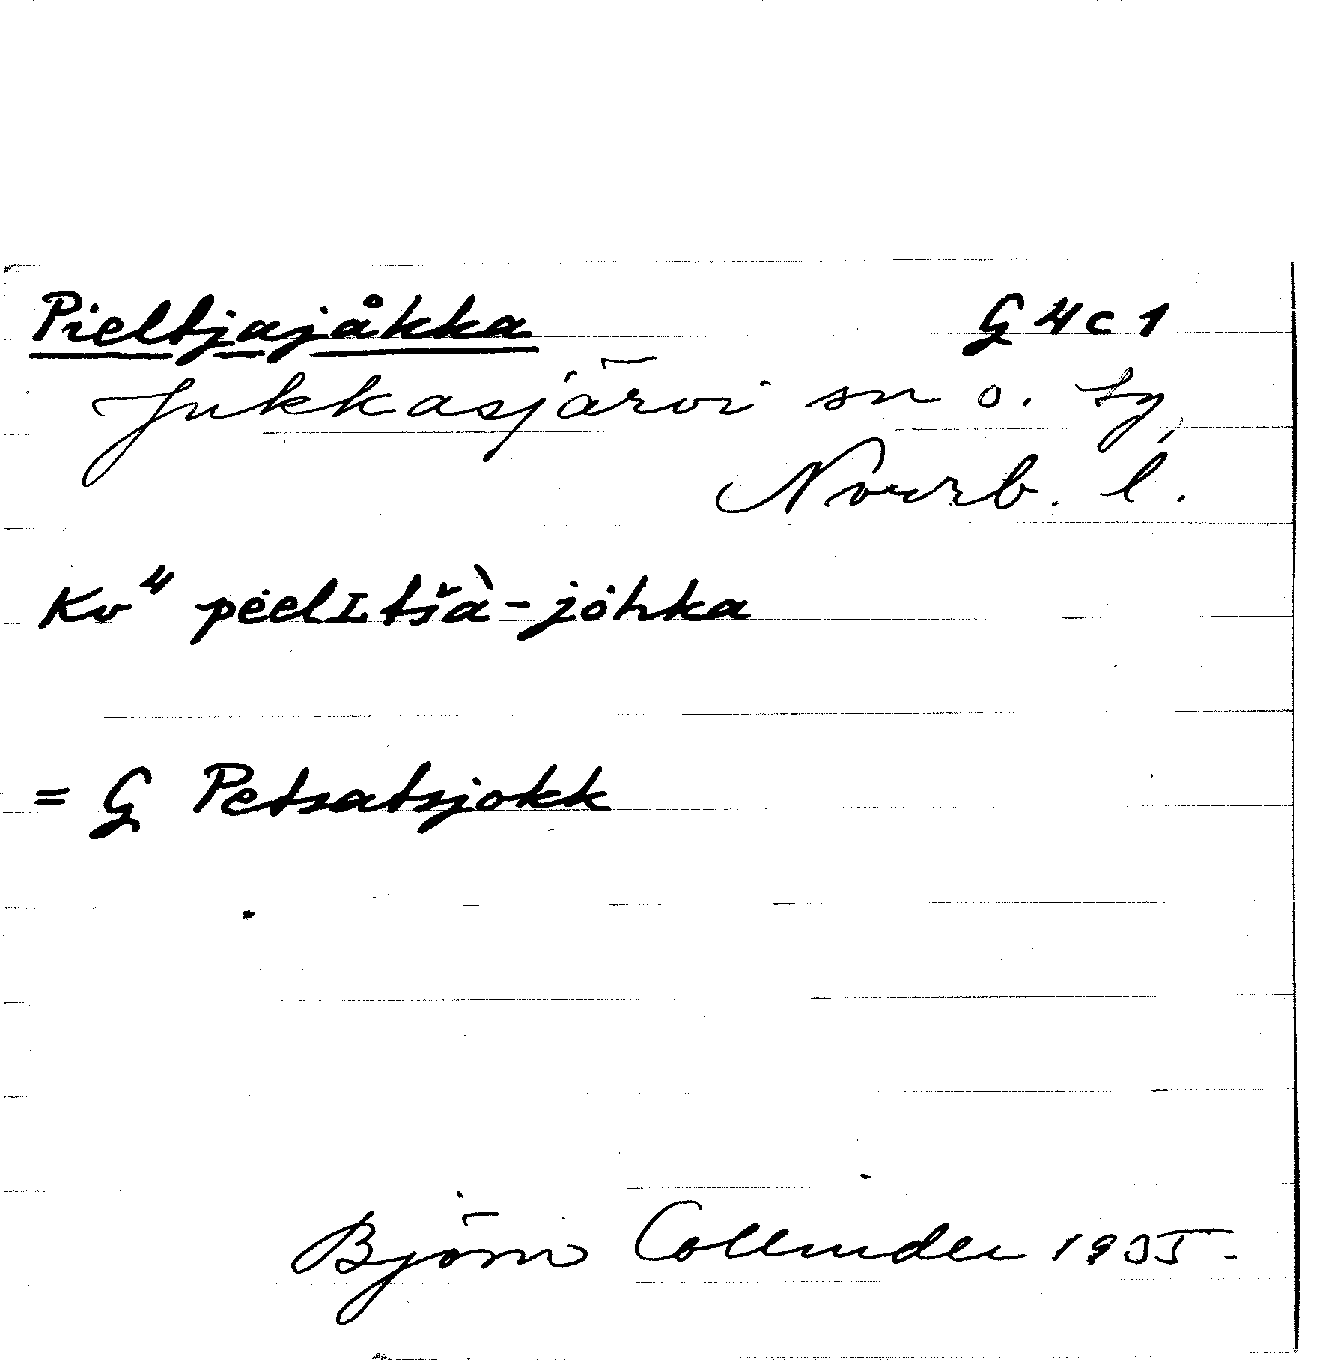 Pieltjajåkka G4c1
Jukkasjärvi sn o. tg,
Norrb. l.
Kv⁴ péelItšà-jòhka
= G Petsatsjokk
Björn Collinder 1935